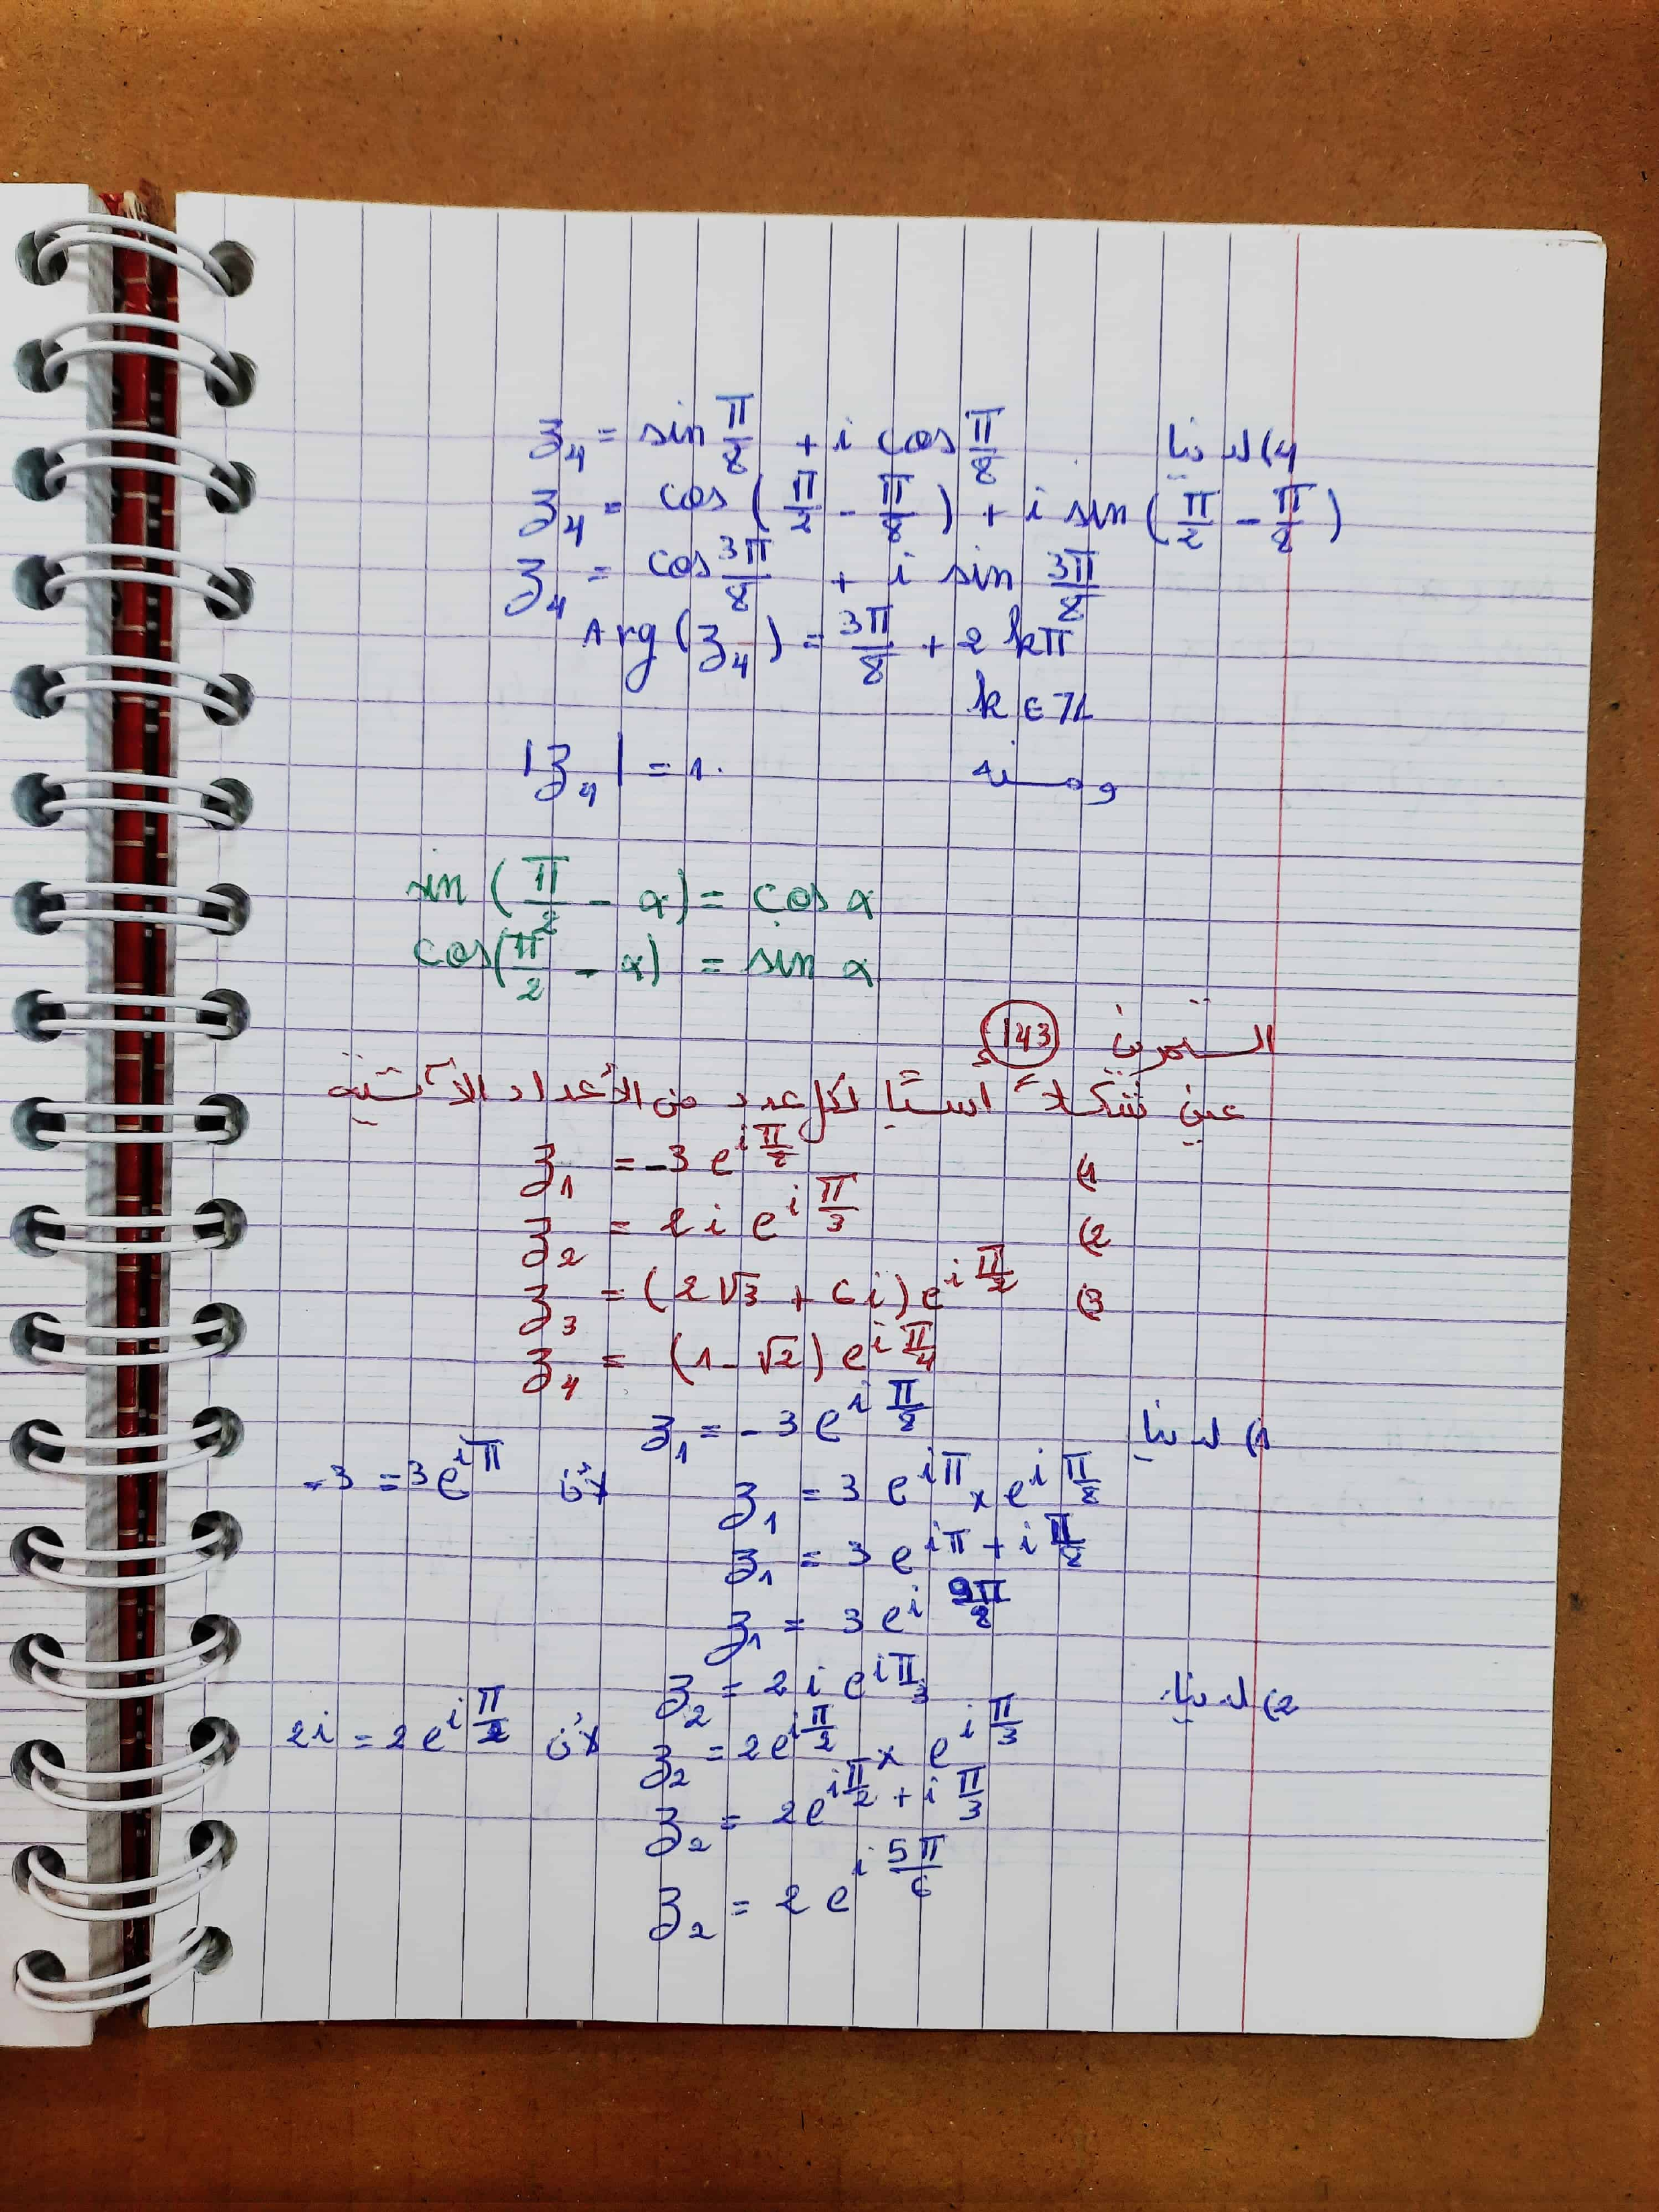 4) لدينا z₄ = sin π/8 + i cos π/8
z₄ = cos(π/2 - π/8) + i sin(π/2 - π/8)
z₄ = cos 3π/8 + i sin 3π/8
Arg(z₄) = 3π/8 + 2kπ
k ∈ ℤ
ومنه |z₄| = 1.
sin(π/2 - α) = cos α
cos(π/2 - α) = sin α
التمرين 143
عين شكلاً إسيًا لكل عدد من الأعداد الآتية
1) z₁ = -3 e^{iπ/8}
2) z₂ = 2i e^{iπ/3}
3) z₃ = (2√3 + 6i) e^{iπ/2}
z₄ = (1-√2) e^{iπ/4}
1) لدينا z₁ = -3 e^{iπ/8}
z₁ = 3 e^{iπ} × e^{iπ/8} لأن -3 = 3e^{iπ}
z₁ = 3 e^{iπ + iπ/8}
z₁ = 3 e^{i9π/8}
2) لدينا z₂ = 2i e^{iπ/3}
z₂ = 2e^{iπ/2} × e^{iπ/3} لأن 2i = 2e^{iπ/2}
z₂ = 2e^{iπ/2 + iπ/3}
z₂ = 2 e^{i5π/6}